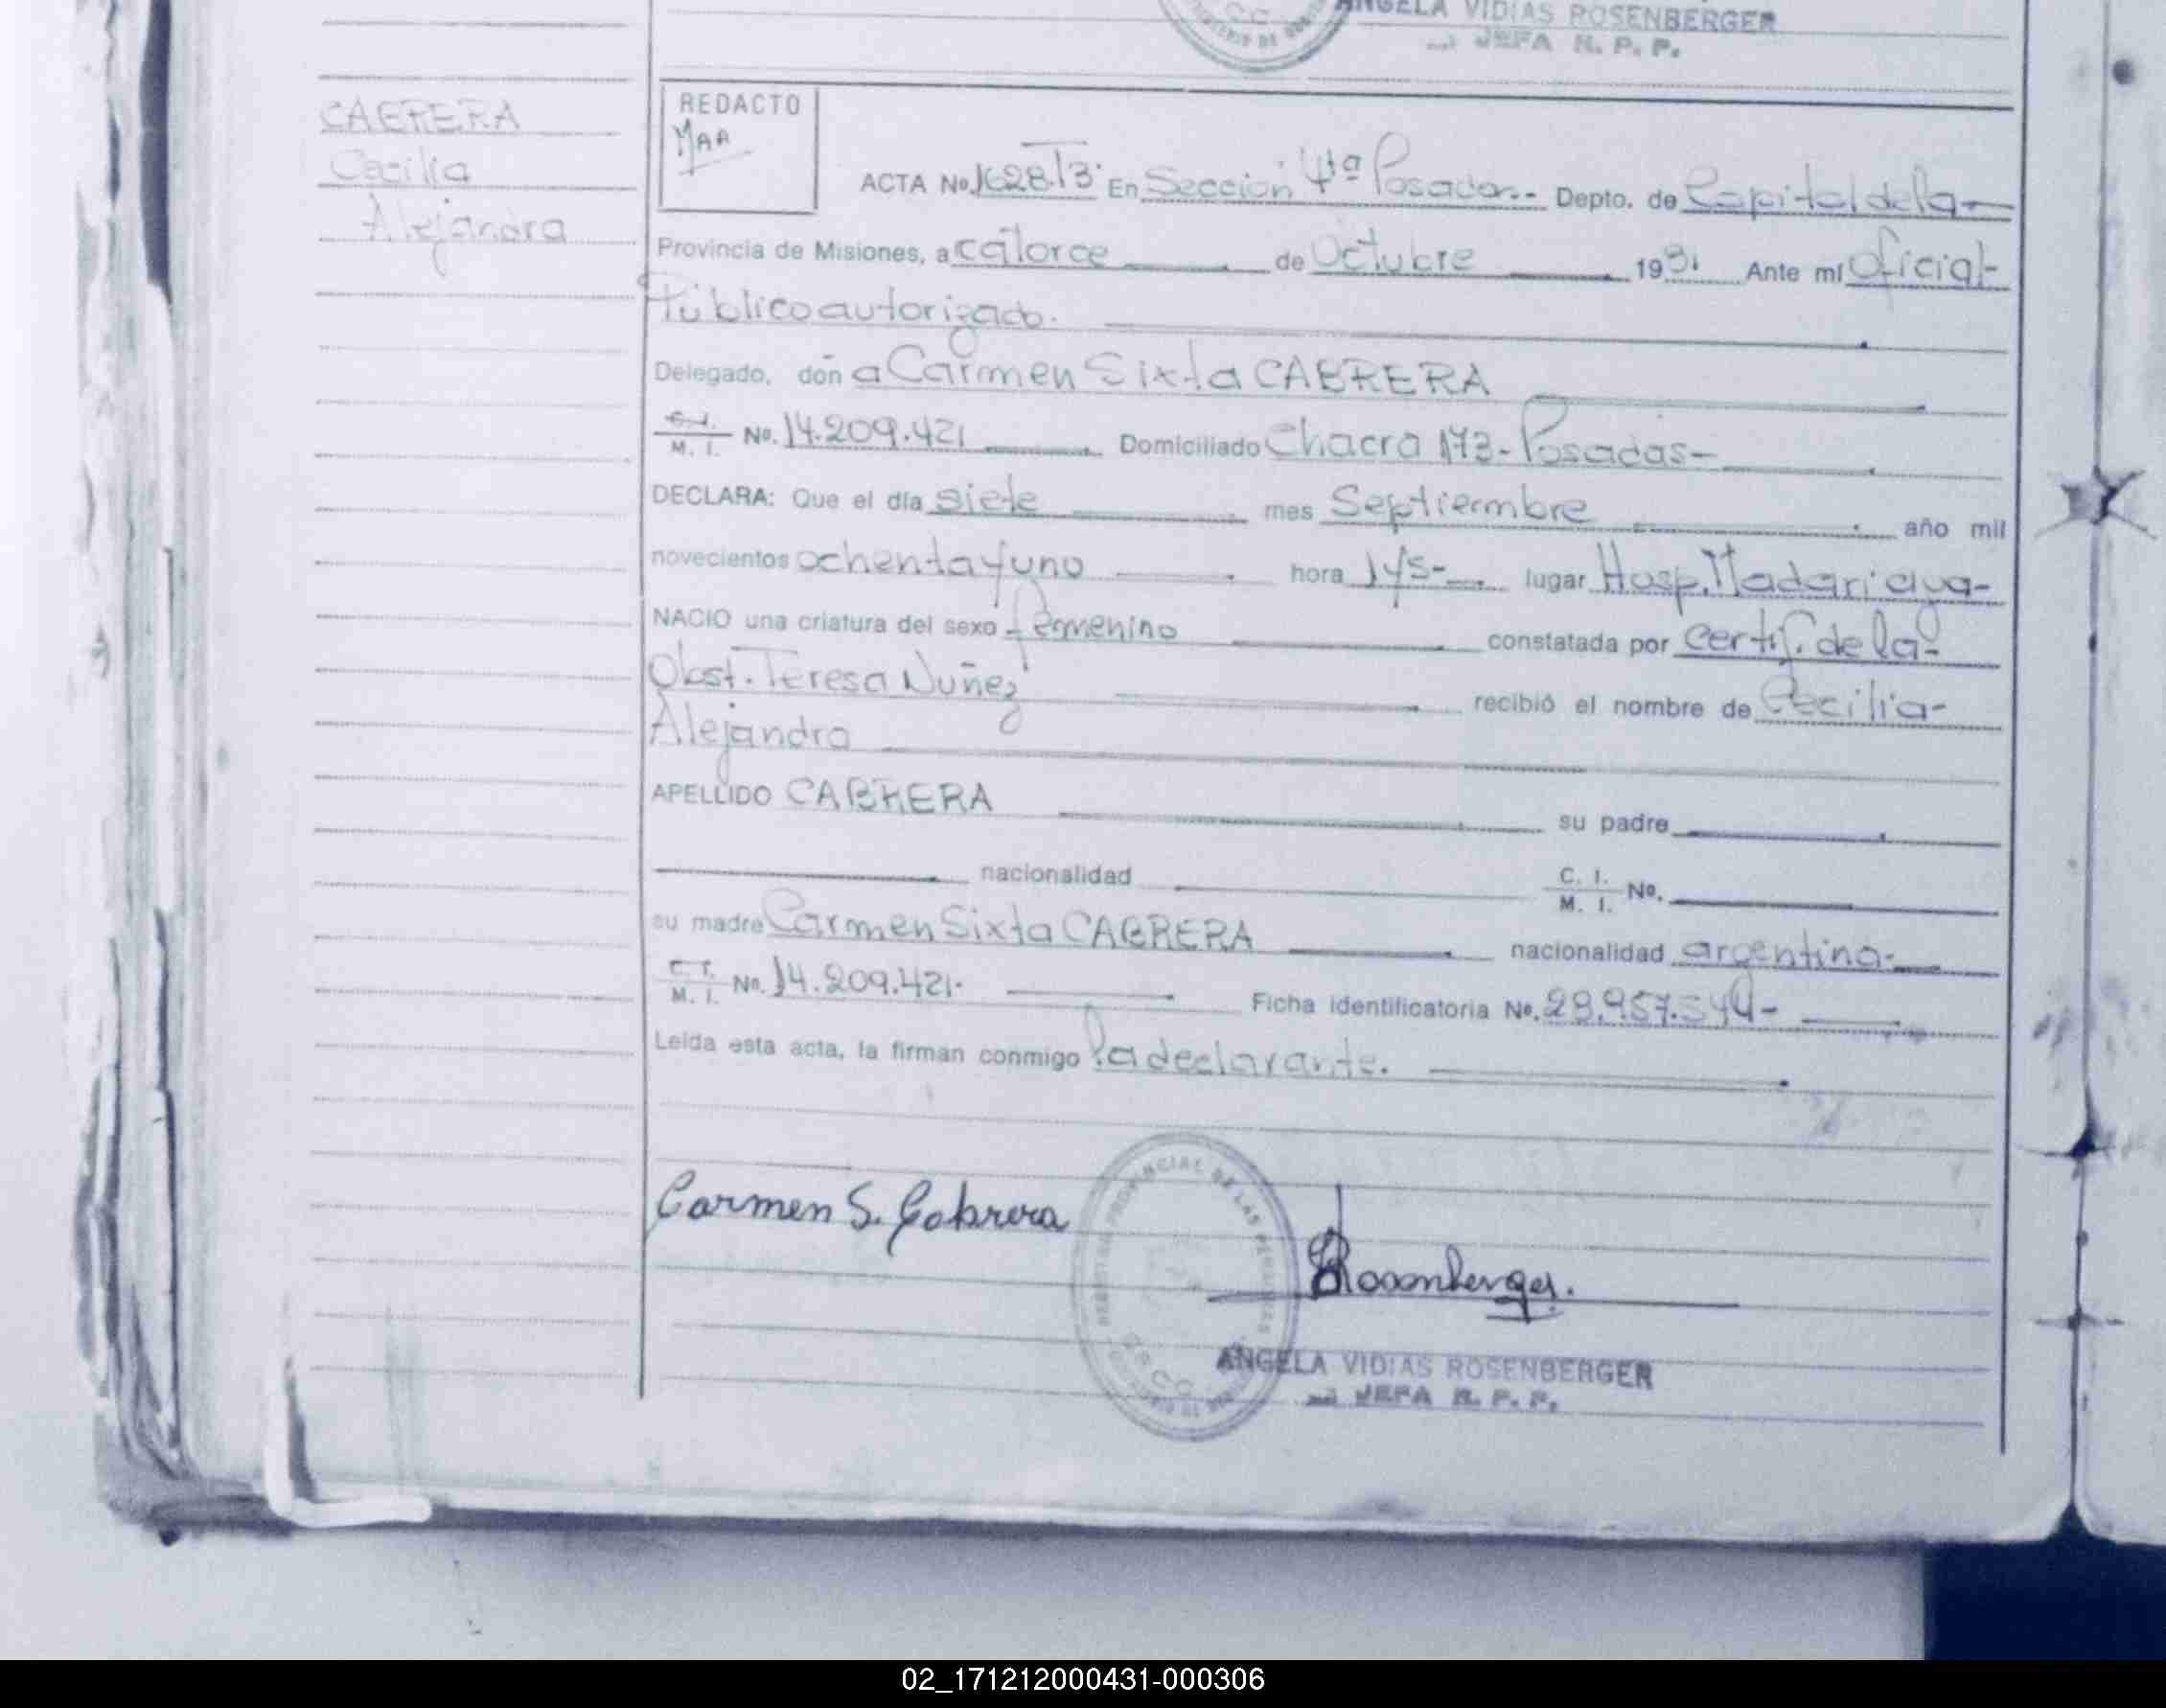 ANGELA VIDIAS ROSENBERGER
JEFA R. P. P.
CABRERA
Cecilia
Alejandra
REDACTO
MAA
ACTA No. 1628.T3. En Sección 4ta Posadas.- Depto. de Capital de la-
Provincia de Misiones, a catorce de Octubre 1981 Ante mí Oficial-
Público autorizado.
Delegado, don a Carmen Sixta CABRERA
C. I. M. I. No. 14.209.421 Domiciliado Chacra 173- Posadas-
DECLARA: Que el día siete mes Septiermbre año mil
novecientos ochenta y uno hora 1y5- lugar Hosp. Madariaga-
NACIO una criatura del sexo femenino constatada por certif. de la-
Obst. Teresa Nuñez recibió el nombre de Cecilia-
Alejandra
APELLIDO CABRERA su padre
nacionalidad C. I. M. I. No.
su madre Carmen Sixta CABRERA nacionalidad argentina-
C. I. M. I. No. 14.209.421. Ficha identificatoria No.
Leida esta acta, la firman conmigo la declarante.
Carmen S. Cabrera
Rosenberger.
PROVINCIAL DE LAS PERSONAS
ANGELA VIDIAS ROSENBERGER
JEFA R. P. P.
02_171212000431-000306